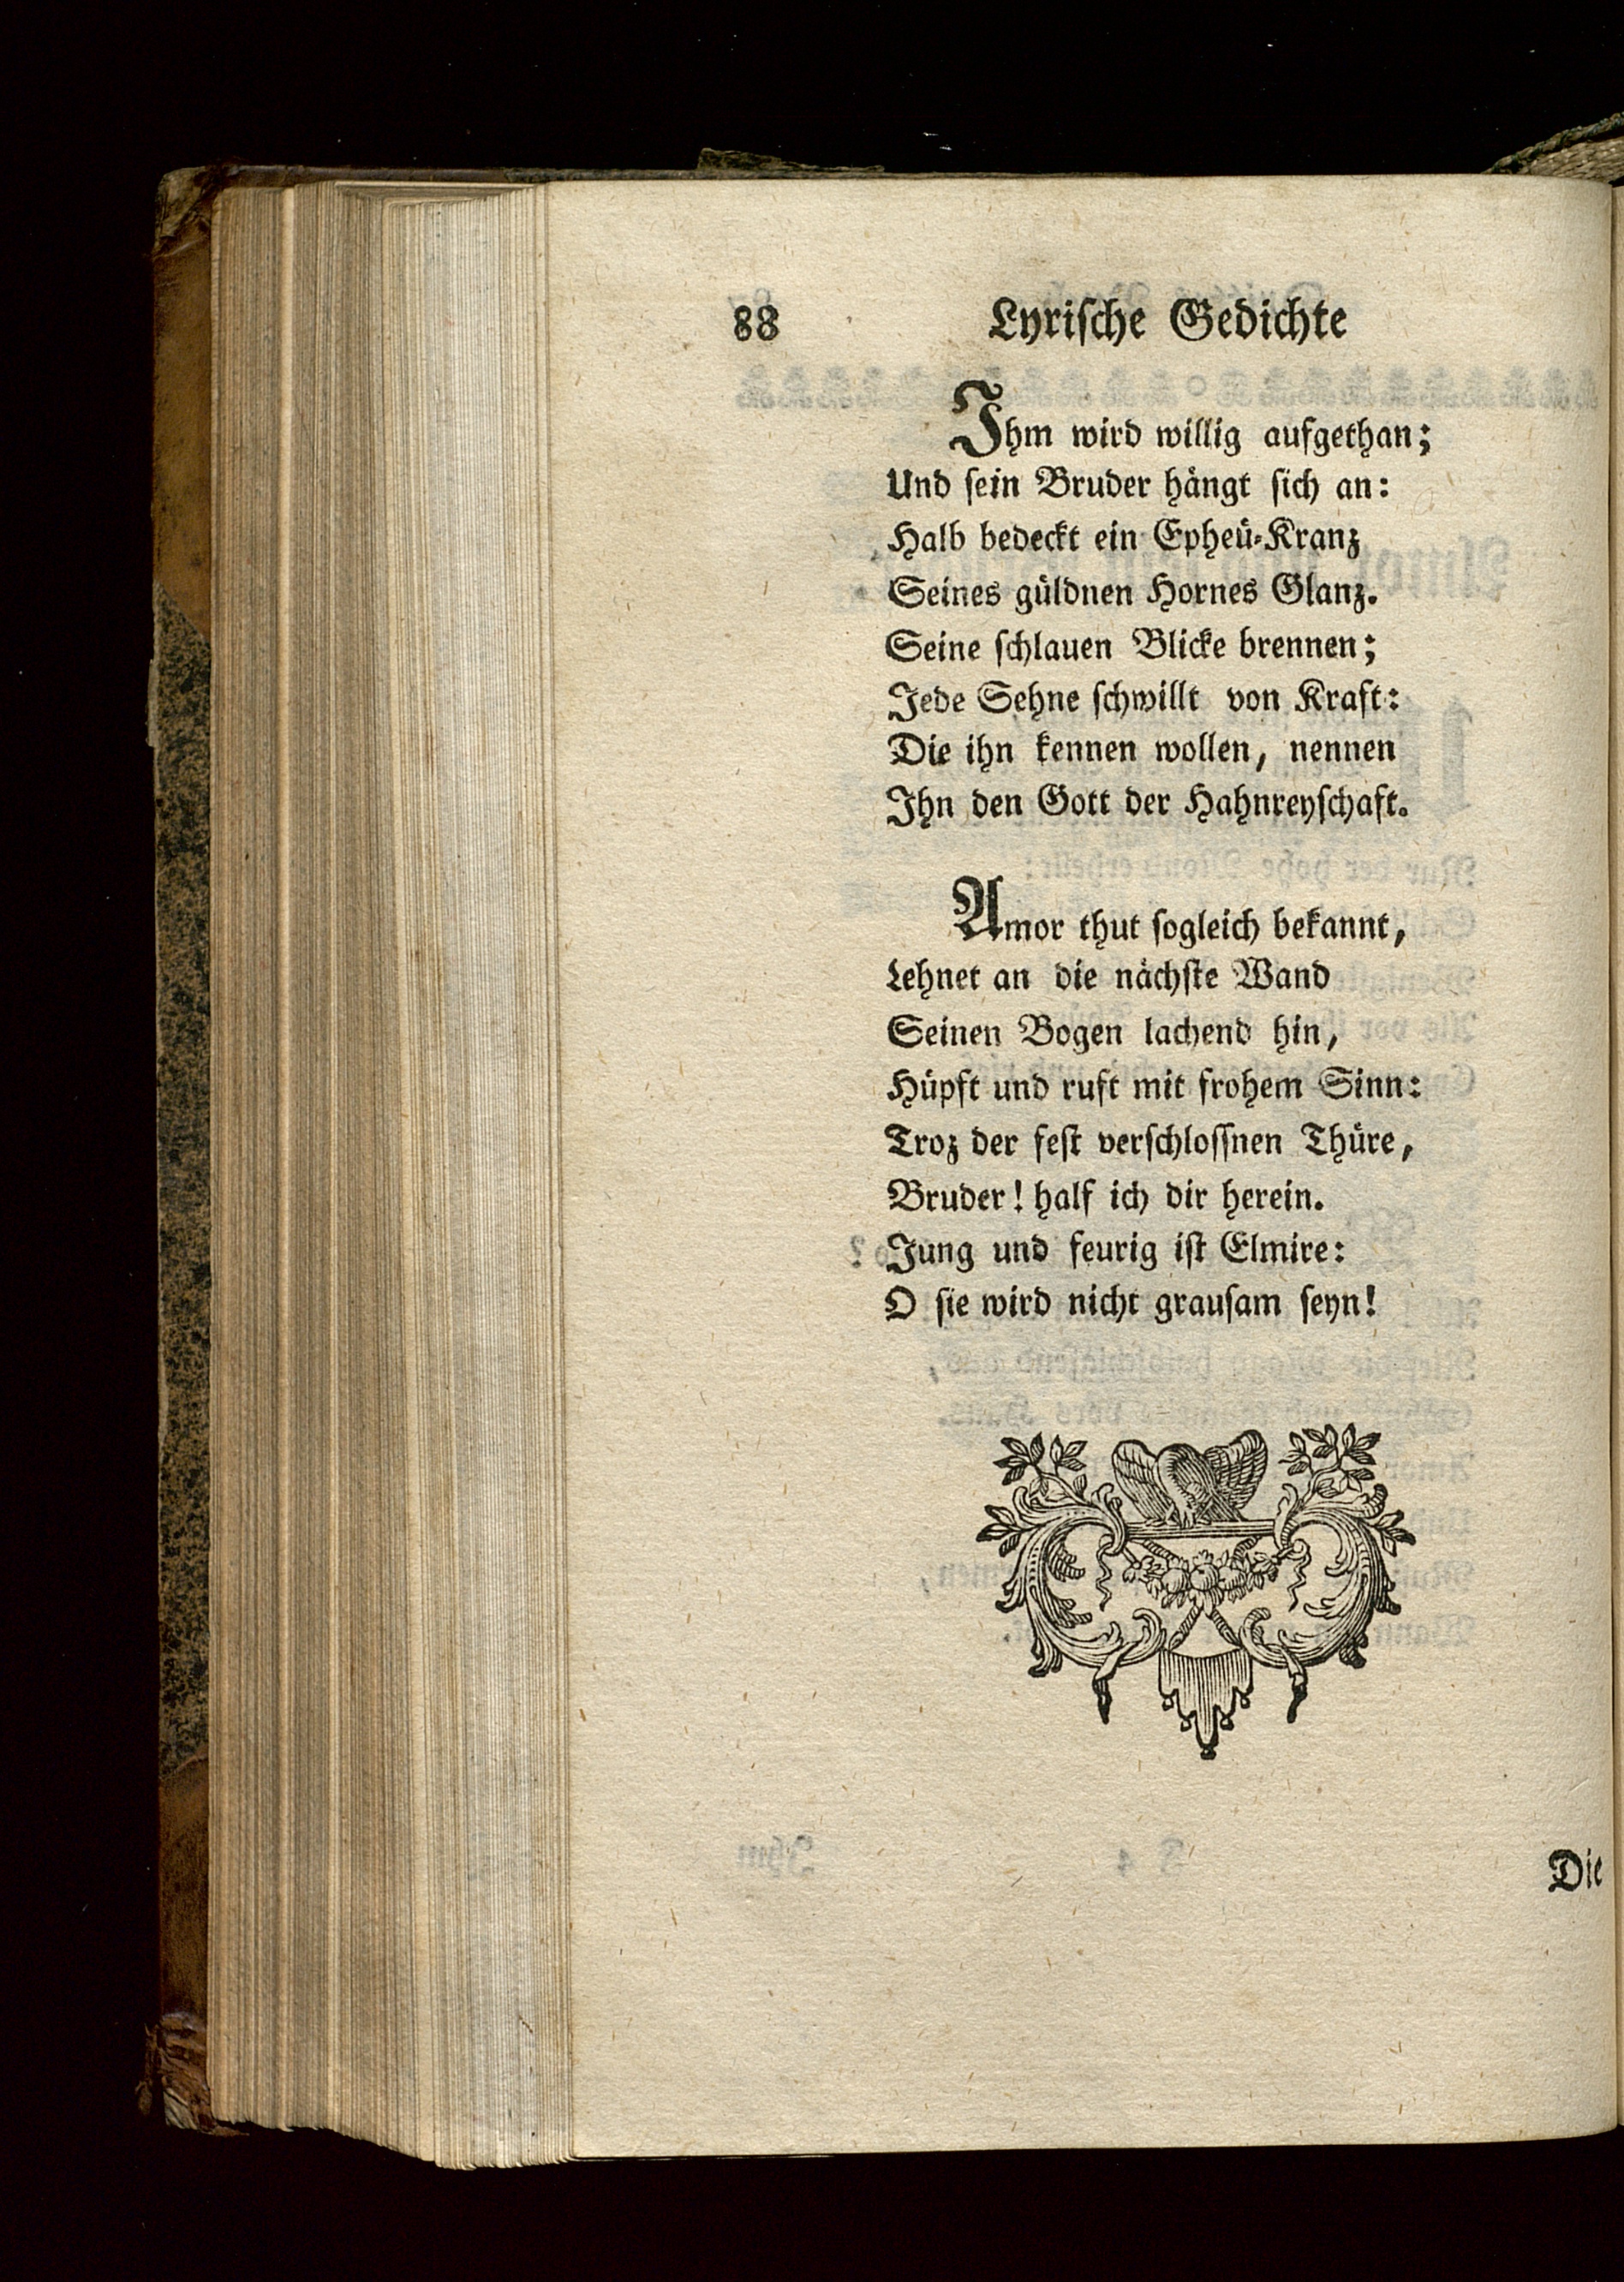 88 Lyriſche Gedichte
Ihm wird willig aufgethan;
Und ſein Bruder hängt ſich an:
Halb bedeckt ein Epheü-Kranz
Seines güldnen Hornes Glanz.
Seine ſchlauen Blicke brennen;
Jede Sehne ſchwillt von Kraft:
Die ihn kennen wollen, nennen
Ihn den Gott der Hahnreyſchaft.
Amor thut ſogleich bekannt,
Lehnet an die nächſte Wand
Seinen Bogen lachend hin,
Hüpft und ruft mit frohem Sinn:
Troz der feſt verſchloſſnen Thüre,
Bruder! half ich dir herein.
Jung und feurig iſt Elmire:
O ſie wird nicht grauſam ſeyn!
Die